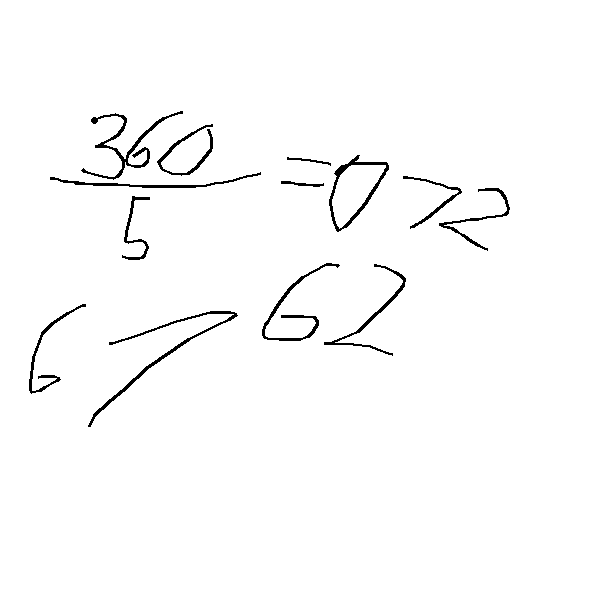 360/5 = 072
67 62